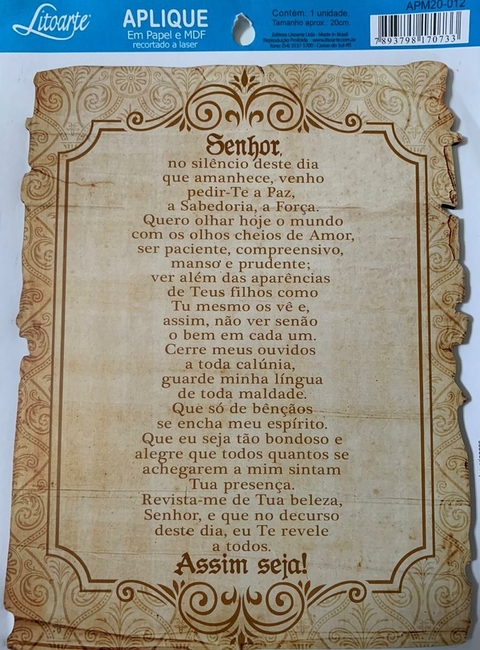 Litoarte
APLIQUE
Em Papel e MDF
recortado a laser
Contém: 1 unidade.
Tamanho aprox. 20cm.
APM20-012
7893798170733
Senhor,
no silêncio deste dia
que amanhece, venho
pedir-Te a Paz,
a Sabedoria, a Força.
Quero olhar hoje o mundo
com os olhos cheios de Amor,
ser paciente, compreensivo,
manso e prudente;
ver além das aparências
de Teus filhos como
Tu mesmo os vê e,
assim, não ver senão
o bem em cada um.
Cerre meus ouvidos
a toda calúnia,
guarde minha língua
de toda maldade.
Que só de bênçãos
se encha meu espírito.
Que eu seja tão bondoso e
alegre que todos quantos se
achegarem a mim sintam
Tua presença.
Revista-me de Tua beleza,
Senhor, e que no decurso
deste dia, eu Te revele
a todos.
Assim seja!